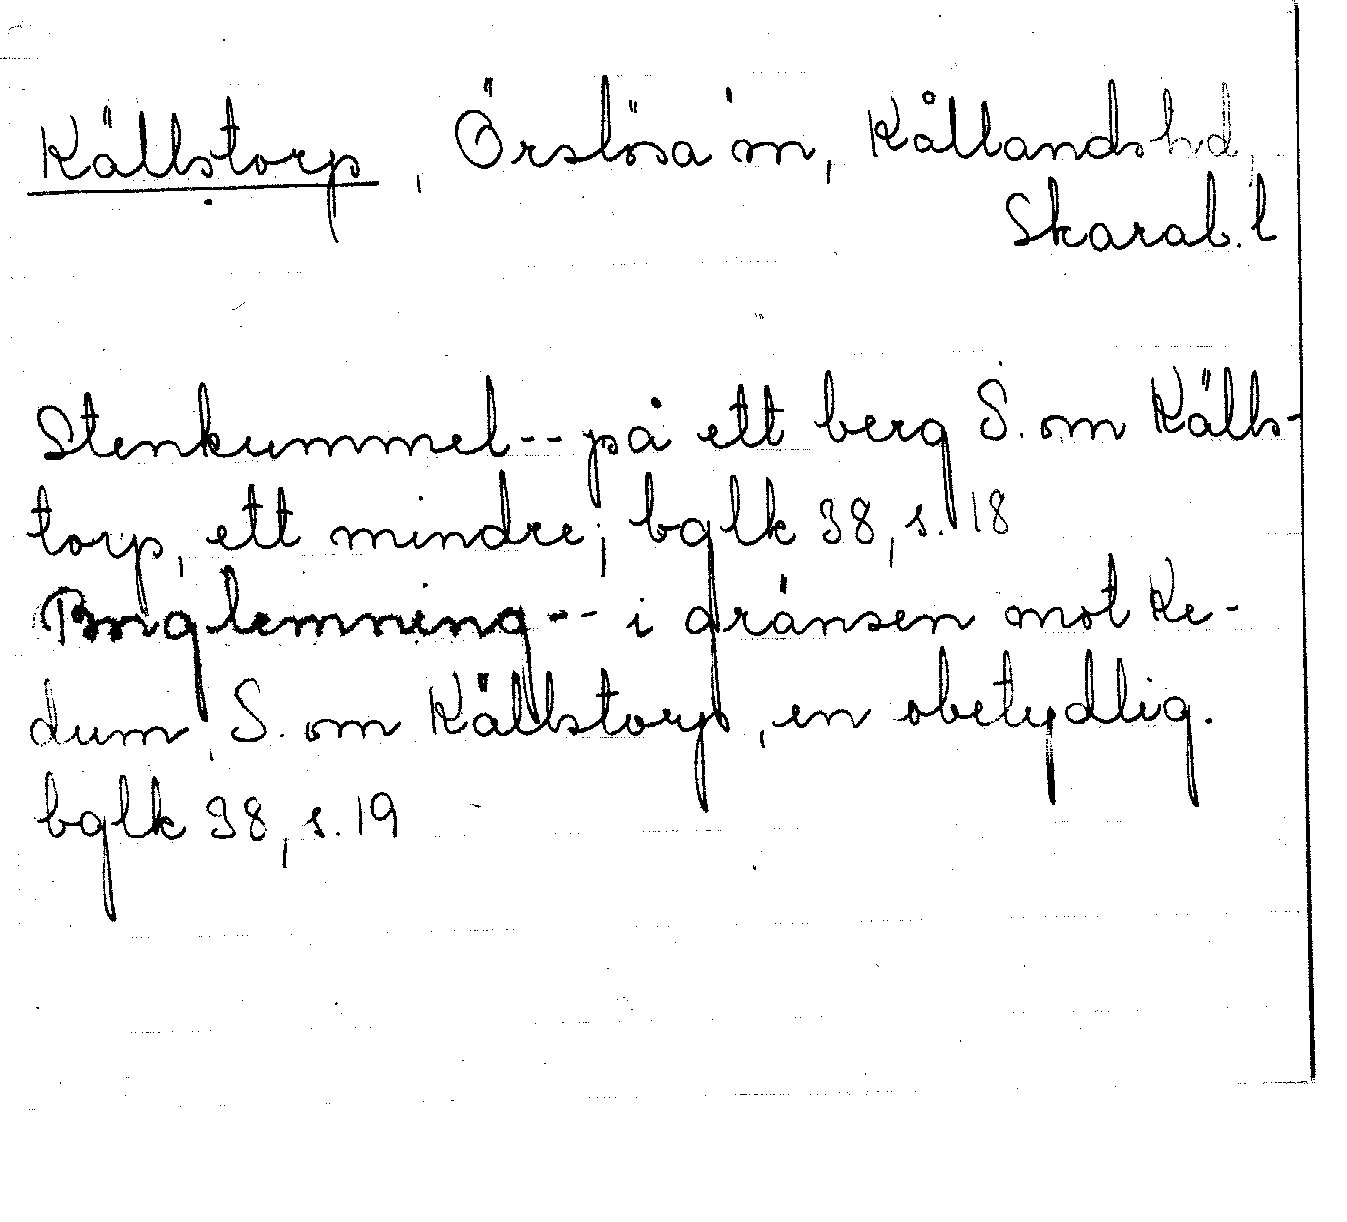 Källstorp, Örslösa sn, Kållands hd,
Skarab. l
Stenkummel -- på ett berg S. om Källs-
torp, ett mindre; bglk 38, s. 18
Borglemning -- i gränsen mot Ke-
dum, S. om Källstorp, en obetydlig.
bglk 38, s. 19